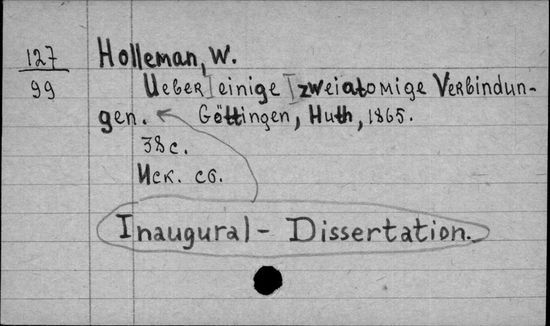 127
99
Holleman, W.
Ueber einige zweiatomige Verbindun-
gen. Göttingen, Huth, 1865.
38 с.
Иск. сб.
Inaugural - Dissertation.